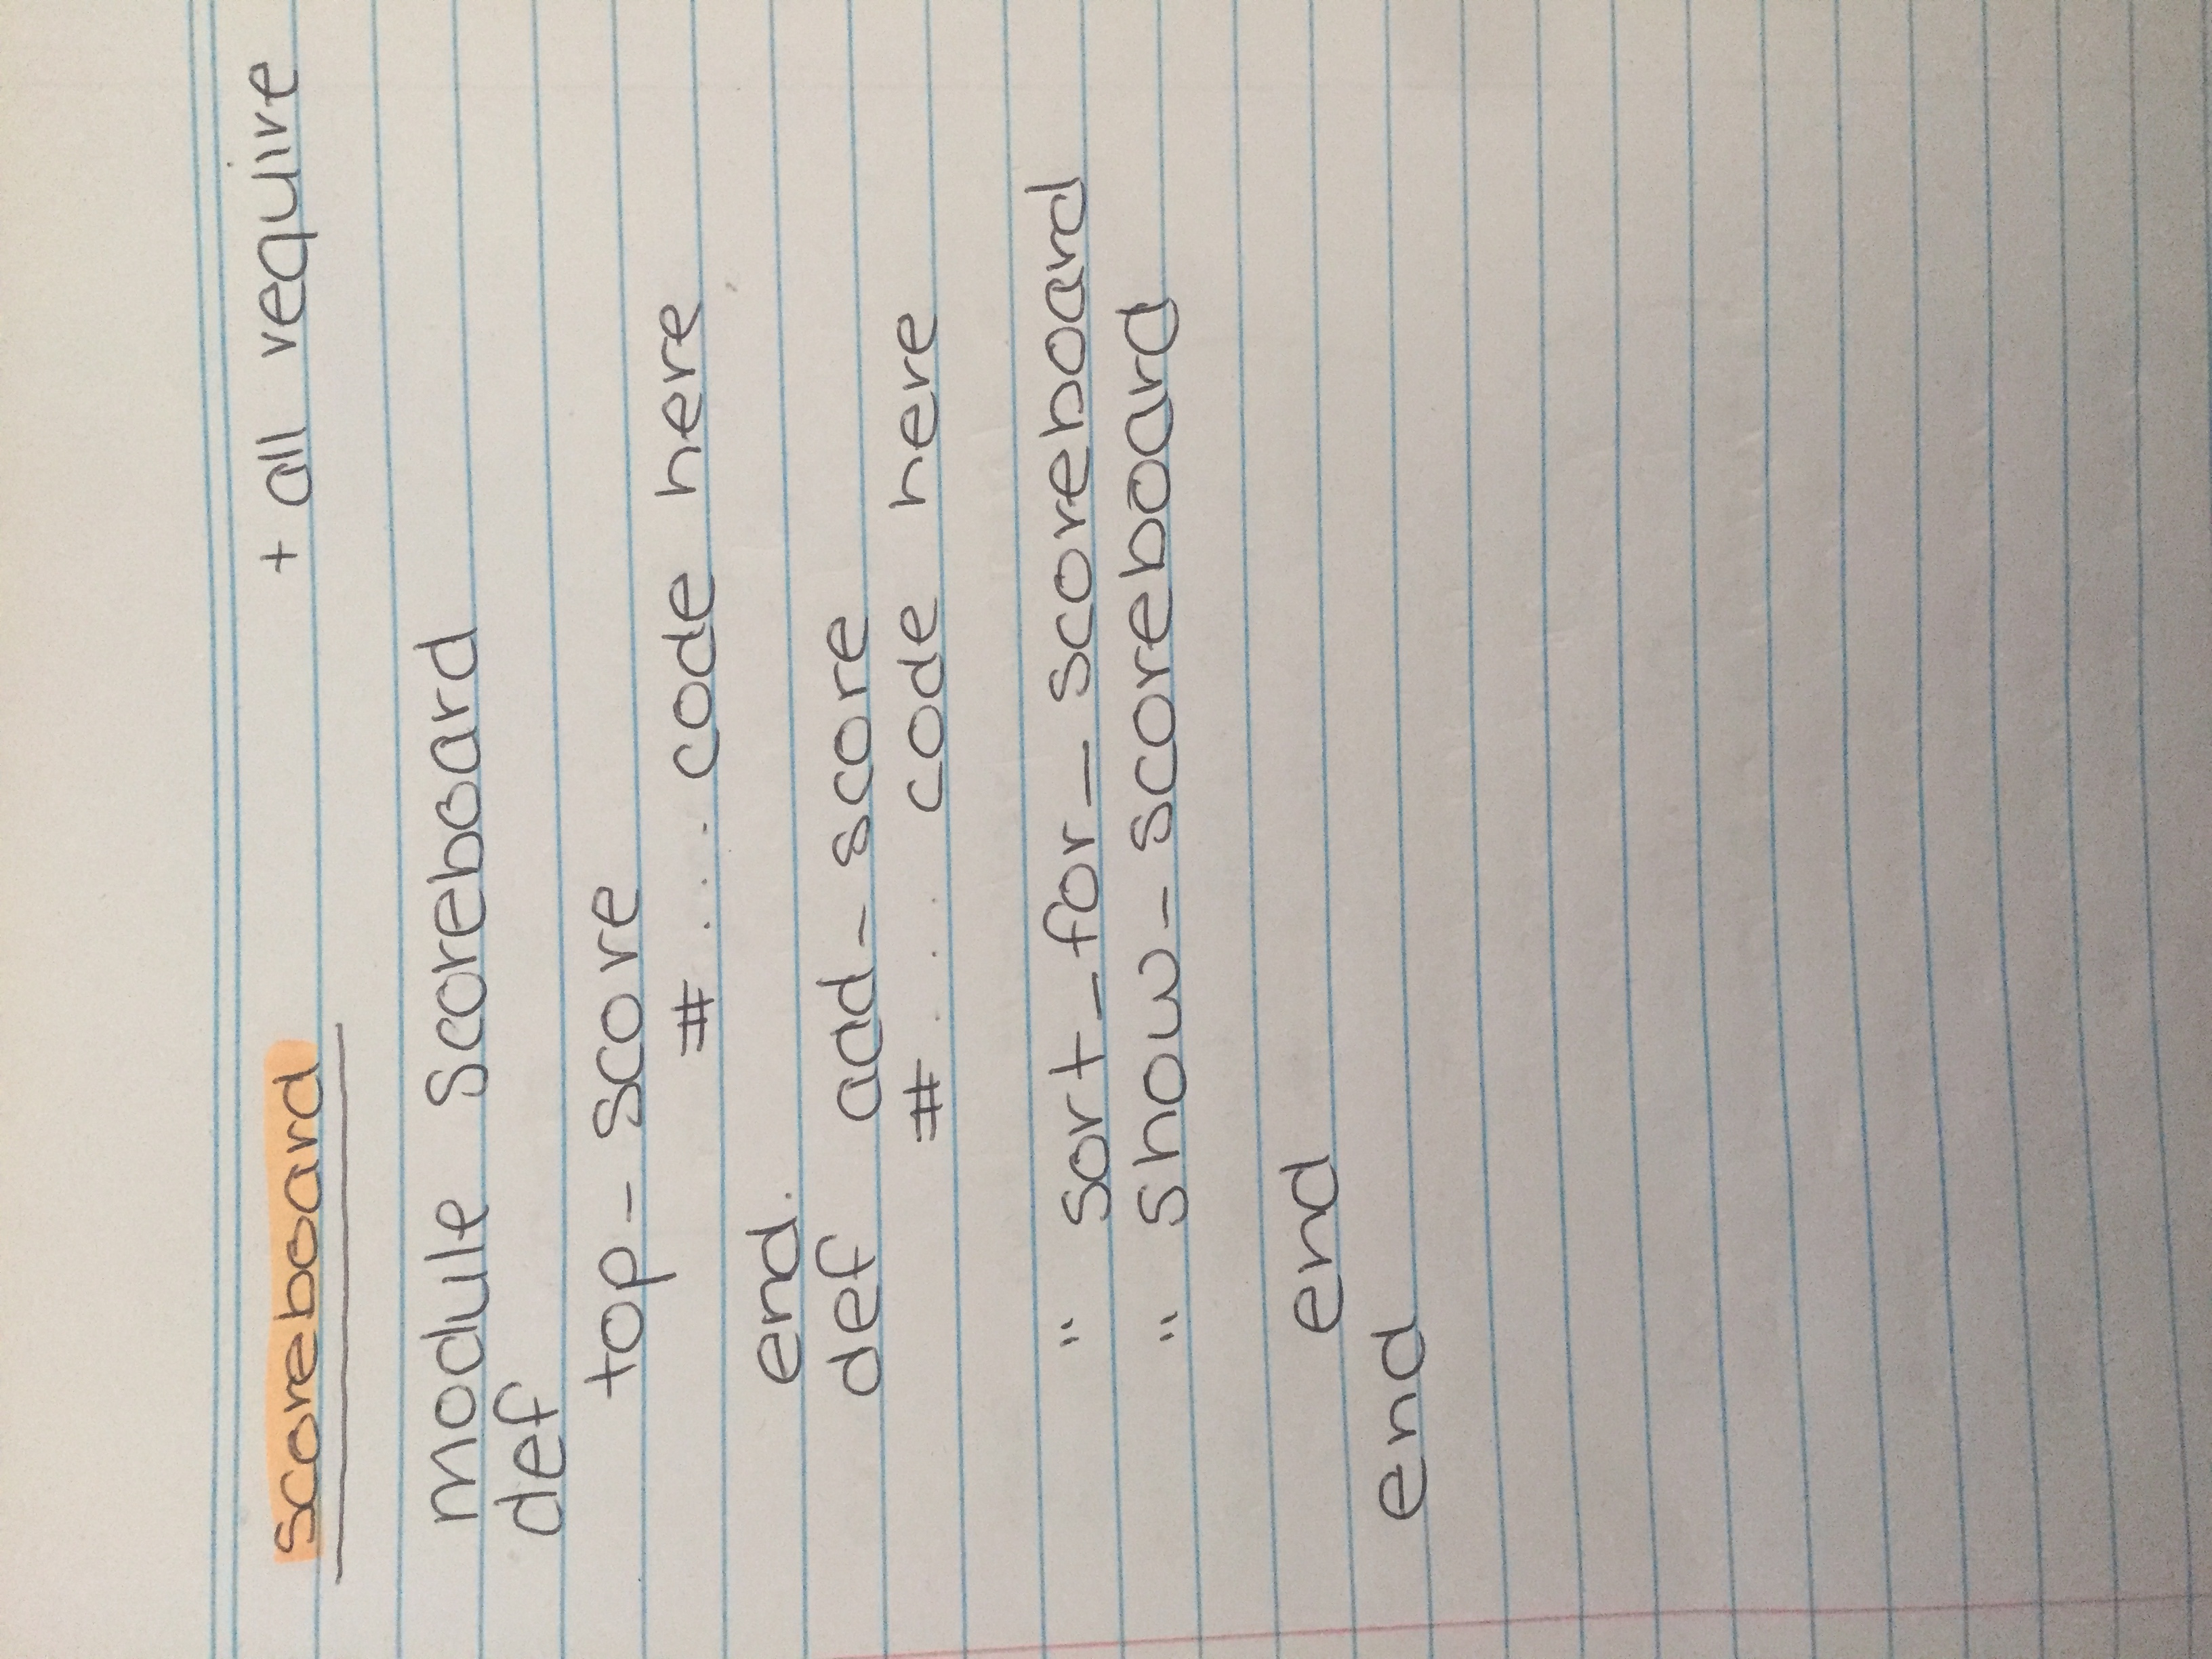 scoreboard + all require
module Scoreboard
def
top_score
# .... code here
end.
def add_score
# ... code here
" sort_for_scoreboard
" show_scoreboard
end
end